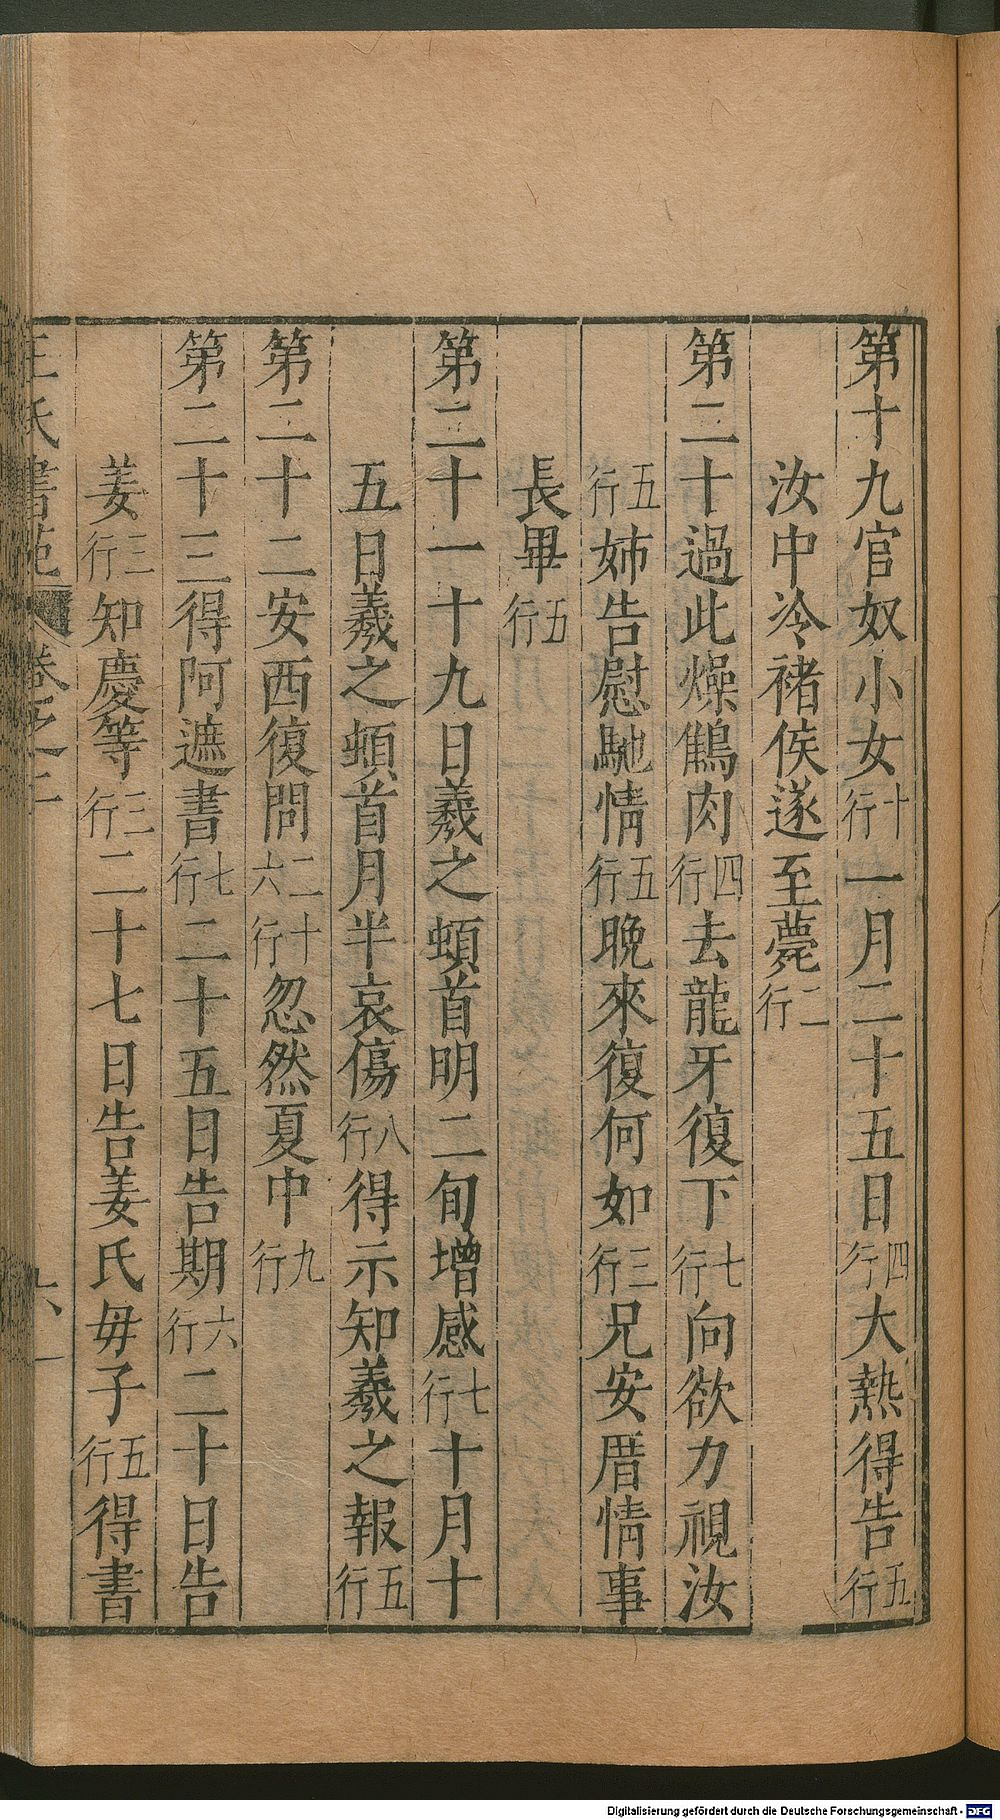 第十九官奴小女十行一月二十五日四行大熱得告五行
汝中冷褚侯遂至薨二行
第二十過此燥鷦肉四行去龍牙復下七行向欲力視汝
五行姊告慰馳情五行晚來復何如三行兄安厝情事
長畢五行
第二十一十九日羲之頓首明二旬增感七行十月十
五日羲之頓首月半哀傷八行得示知羲之報五行
第二十二安西復問二十六行忽然夏中九行
第二十三得阿遮書七行二十五日告期六行二十日告
姜三行知慶等三行二十七日告姜氏毋子五行得書
王氏書苑 卷之二
Digitalisierung gefördert durch die Deutsche Forschungsgemeinschaft - DFG